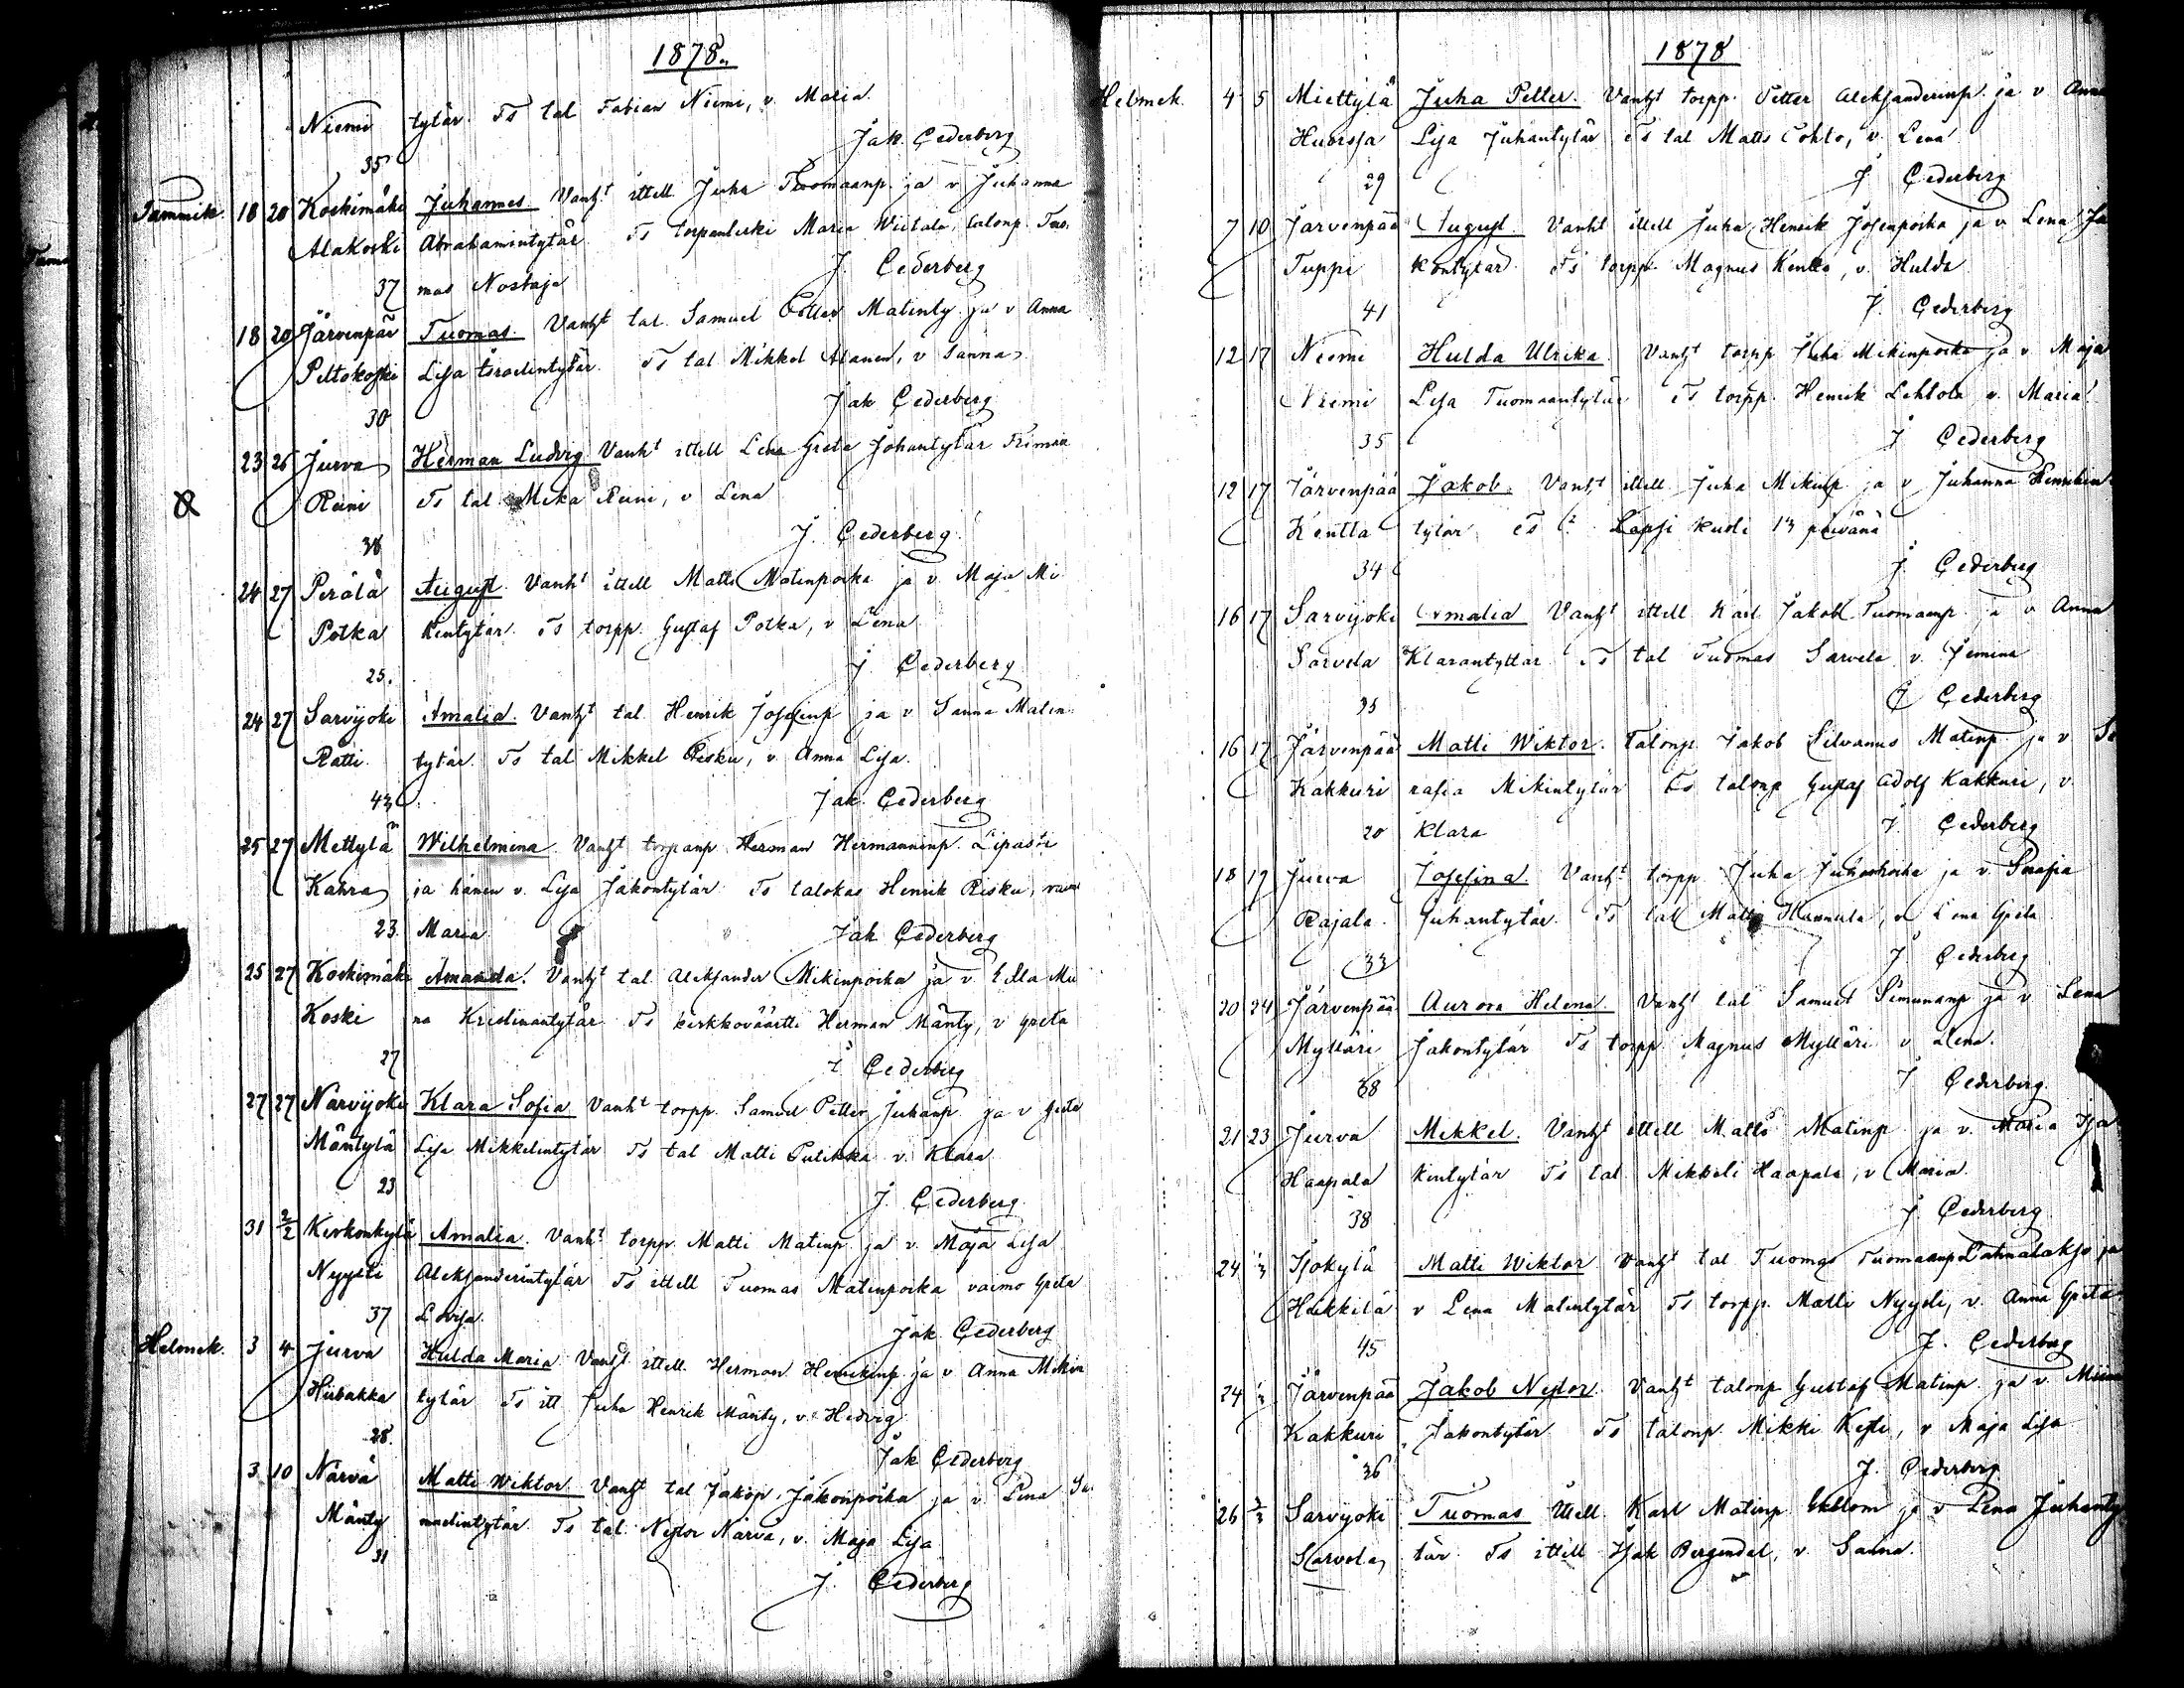 1878.
Niemi tytär. Ts tal Fabian Niemi, v. Maria.
Jak. Cederberg
35
Tammik. 18 20 Koskimäki Juhannes Vanht ittell Juha Tuomaanp. ja v Juhanna
Alakoski Abrahamintytär. Ts torpanleski Maria Wiitala, talonp. Tuo-
37 mas Nostaja J. Cederberg
18 20 Järvenpää Tuomas. Vanht tal. Samuel Petter Matinty ja v Anna
Peltokoski Lisa Israelintytär. Ts tal Mikkel Alanen, v Sanna
Jak Cederberg
30
23 26 Jurva Herman Ludvig Vanht ittell Lena Greta Johantytär
Reini Ts tal. Mika Reini, v Lena
J. Cederberg
38
24 27 Perälä August Vanht ittell Matts Matinpoika ja v Maja Mi-
Potka kintytär. Ts torpp. Gustaf Potka, v Lena
J Cederberg
25.
24 27 Sarvijoki Amalia. Vanht tal. Henrik Josefinp ja v Sanna Matin-
Ratti tytär. Ts tal Mikkel Risku, v Anna Lisa.
43 Jak. Cederberg
25 27 Mettylä Wilhelmina Vanht torpanp Herman Hermanninp.
Kahra ja hänen v. Lisa Jakontytär Ts talokas Henrik Risku,
23 Maria Jak Cederberg
25 27 Koskimäki Amanda. Vanht tal Aleksander Mikinpoika ja v
Koski Ts kirkkoväärtti Herman Mänty, v Greta
27 J Cederberg
27 27 Närvijoki Klara Sofia Vanht torpp. Samuel Petter Juhanp ja v Greta
Mäntylä Lisa Mikkelintytär Ts tal Matti Pulikka v. Klara
23 J. Cederberg
31 2/2 Kirkonkylä Amalia. Vanht torpp. Matti Matinp ja v. Maja Lisa
Nyysti Aleksanderintytär Ts ittell Tuomas Matinpoika vaimo Greta
37 Lovisa. Jak. Cederberg
Helmik. 3 4 Jurva Hulda Maria Vanht ittell. Herman Henrikinp ja v Anna Mikin
Hiibakka tytär Ts itt Juha Henrik Mänty, v. Hedvig
28. Jak Cederberg
3 10 Närvä Matti Wiktor Vanht tal Jakop Jakonpoika ja v Lena
Mänty Ts tal Nestor Närvä, v. Maja Lisa
31 J. Cederberg
1878
Helmik. 4 5 Miettylä Juha Petter. Vanht torpp. Petter Aleksanderinp. ja v Anna
Lisa Juhantytär Ts tal Matts Tohto, v. Lena
29 J Cederberg
7 10 Järvenpää August. Vanht ittell Juha Henrik Josenpoika ja v Lena Ja
Tuppi kontytär. Ts torpp. Magnus Kentta, v. Hulda
41 J. Cederberg
12 17 Niemi Hulda Ulrika. Vanht torpp Juha Mikinpoika ja v. Maja
Niemi Lisa Tuomaantytär Ts torpp. Henrik Lehtola v. Maria
35 J Cederberg
12 17 Järvenpää Jakob. Vanht ittell Juha Mikinp ja v Juhanna Henrikin-
Kentta tytär Ts Lapsi kuoli 13 päivänä
34 J Cederberg
16 17 Sarvijoki Amalia Vanht ittell Karl Jakob Tuomaanp. ja v Anna
Sarvela Klarantyttär Ts tal Tuomas Sarvela v. Jemina
35 J Cederberg
16 17 Järvenpää Matti Wiktor. Talonp. Jakob Silvanus Matinp. ja v Se
Kakkuri rafia Mikintytär Ts talonp Gustaf Adolf Kakkuri, v.
20 Klara J. Cederberg
18 19 Jurva Josefina. Vanht torpp Juha Juhanpoika ja v. Serafia
Rajala Juhantytär. Ts tal Matts Hannula, v Lena Greta
33 J Cederberg
20 24 Järvenpää Aurora Helena. Vanht tal Samuel Simunanp ja v Lena
Mylläri Jakontytär Ts torpp. Magnus Mylläri v Lena.
38 J Cederberg
21 23 Jurva Mikkel. Vanht ittell Matts Matinp ja v. Maria Isa
Haapala kintytär Ts tal. Mikkeli Haapala, v Maria.
38 J. Cederberg
24 1/3 Isokylä Matti Wiktor Vanht tal Tuomas Tuomaanp Lahnalakso ja
Hukkila v Lena Matintytär Ts torpp. Matti Nyysti, v. Anna Greta
45 J. Cederberg
24 1/3 Järvenpää Jakob Nestor. Vanht talonp Gustaf Matinp. ja v Miina
Kakkuri Jakontytär Ts talonp Mikki Kesti, v Maja Lisa
36 J. Cederberg
26 3/3 Sarvijoki Tuomas Ittell Karl Matinp Ekblom ja v Lena Juhanty
Sarvela tär Ts ittell Isak Bergendal, v Sanna.